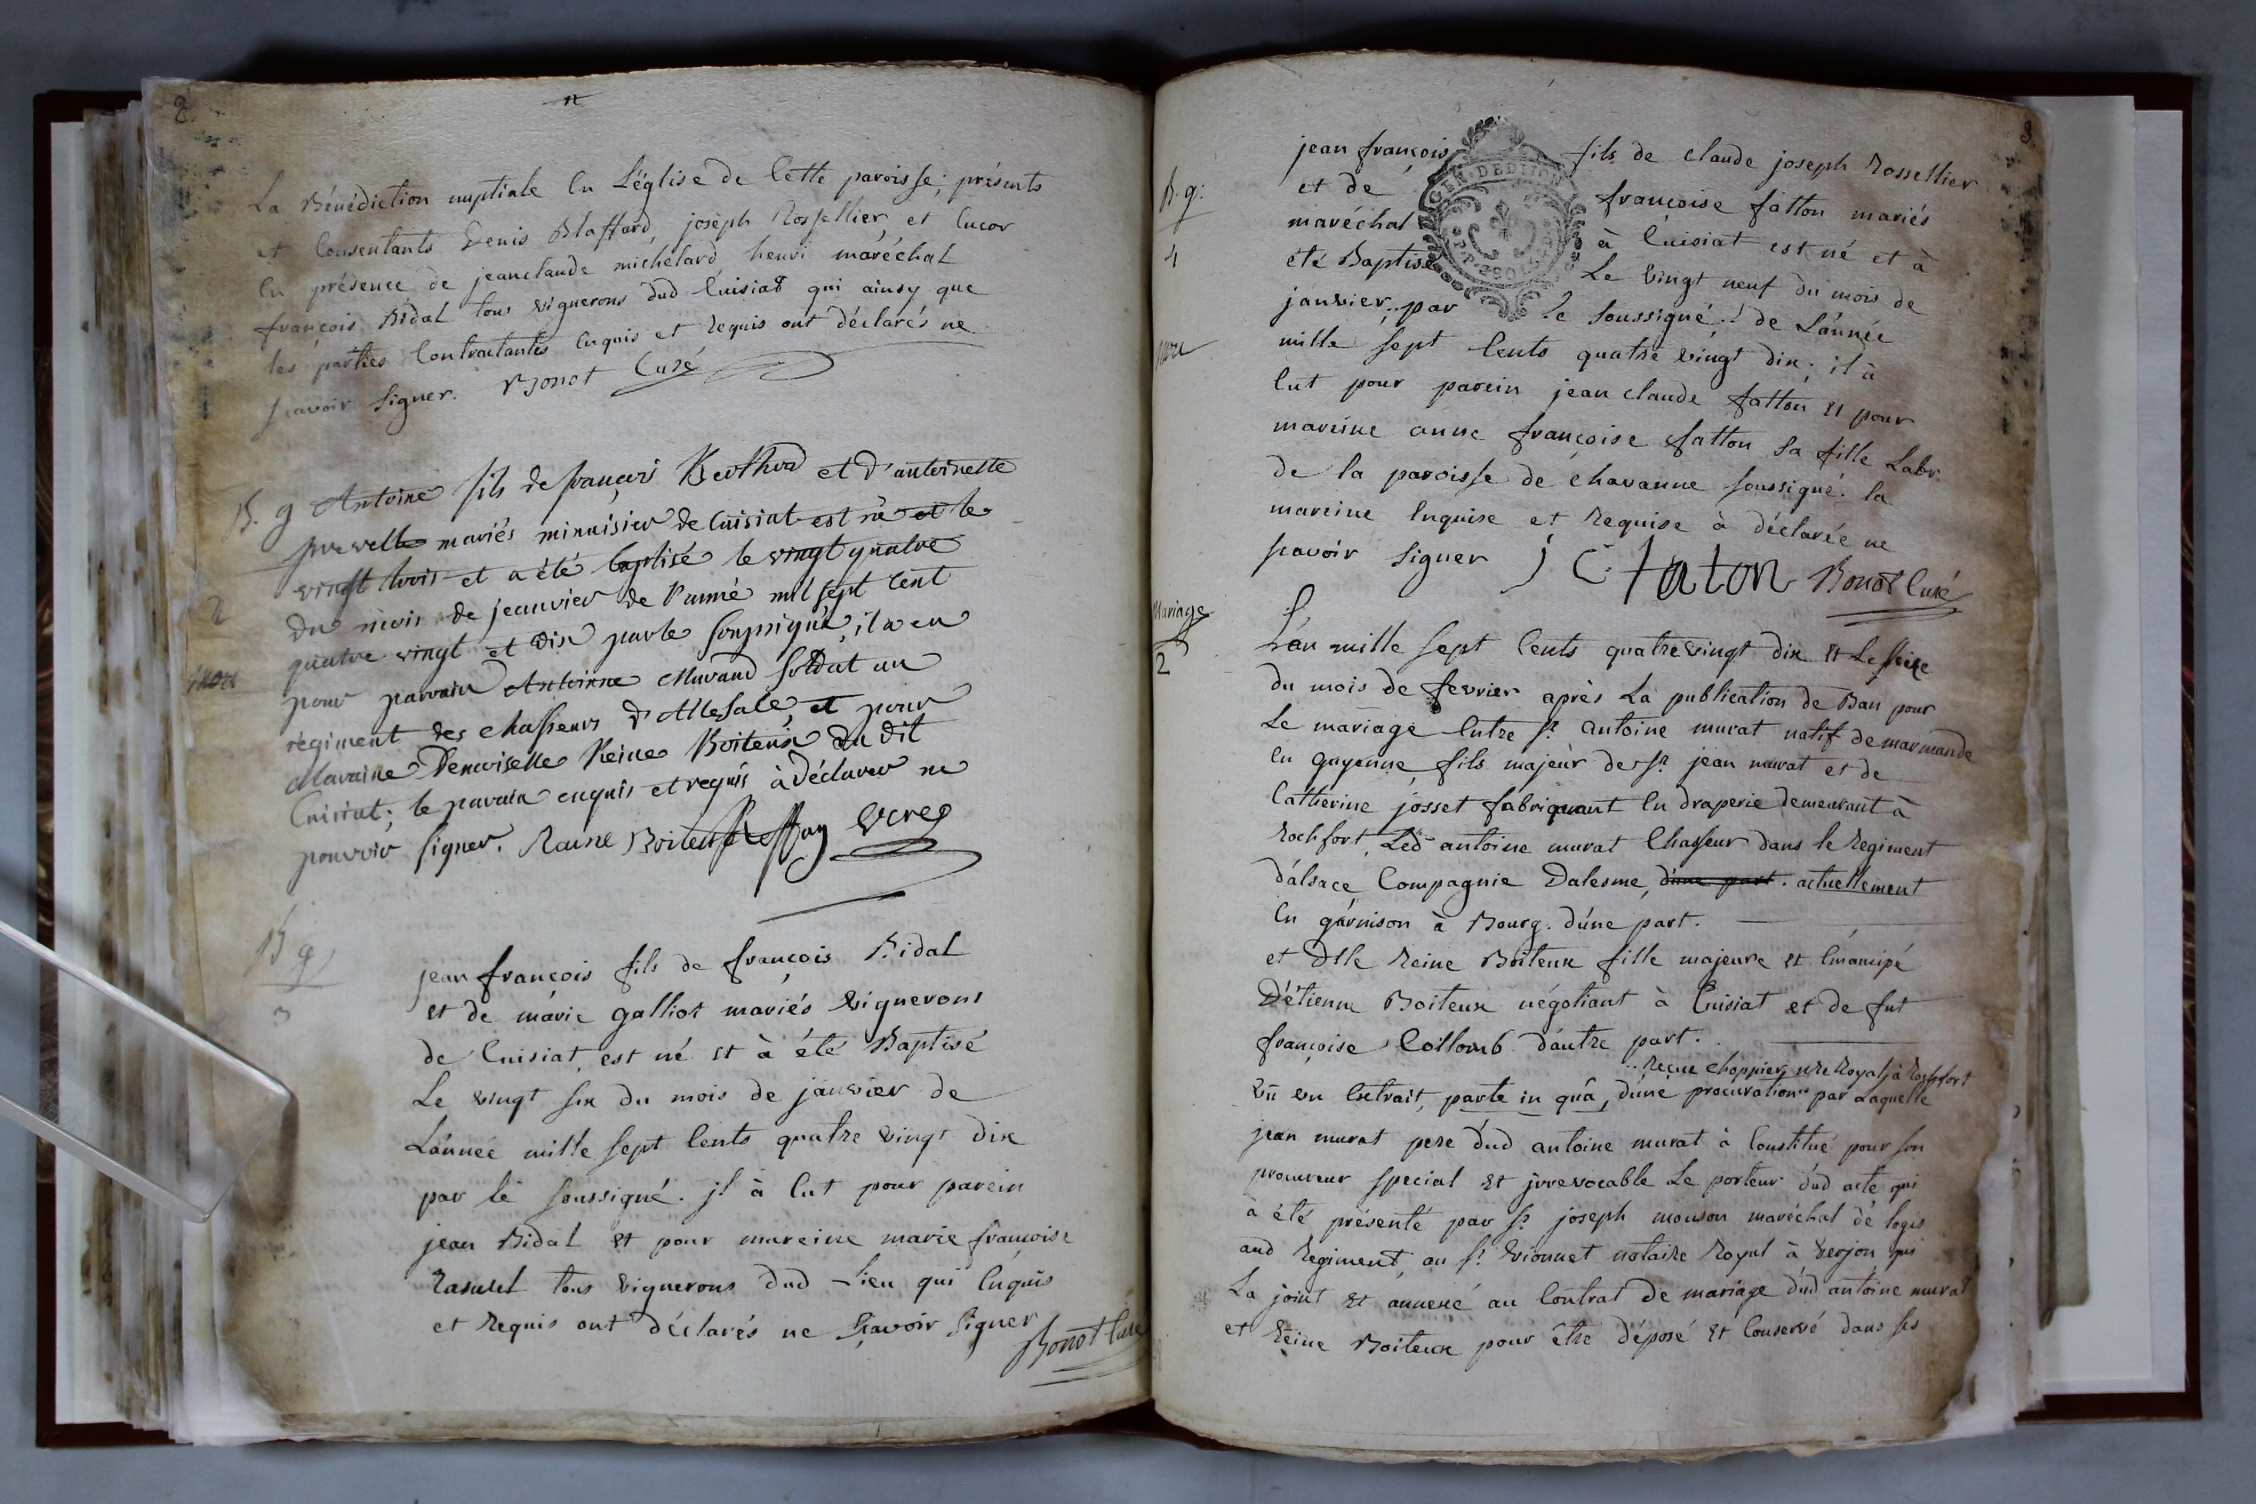 2
La Bénédiction nuptiale en L'église de Cette paroisse; présents
et Consentants Denis Blaffard, joseph Rossellier, et encor
en présence de jean claude michelard henri maréchal
françois Bidal tous vignerons dud Cuisiat qui ainsy que
les parties Contractantes enquis et Requis ont déclarés ne
scavoir signer. Bonot Curé
B. g Antoine fils de françois Berthod et d'antoinette
mariés minuisier de Cuisiat est né et le
vingt trois et a été baptisé le vingt quatre
2 du mois de jeanvier de l'année mil sept cent
quatre vingt et dix par le soussigné, il a eu
pour parrain Antoinne Murand soldat au
régiment des chasseurs d'Allesale, et pour
Maraine Demoiselle Reine Boiteux du dit
Cuisiat; le parain enquis et requis à déclarer ne
pouvoir signer. Raine Boiteux
B g
3
jean françois fils de françois Bidal
et de marie galliot mariés vignerons
de Cuisiat, est né et à été Baptisé
Le vingt six du mois de janvier de
L'année mille sept Cents quatre vingt dix
par le soussigné. jl à Eut pour parein
jean Bidal et pour mareine marie françoise
Rasurel tous vignerons dud Lieu qui Enquis
et Requis ont déclarés ne sçavoir signer
Bonot Curé
3
B. g:
4
jean françois fils de claude joseph Rossellier
et de françoise fatton mariés
maréchal à Cuisiat est né et à
été Baptisé Le vingt neuf du mois de
janvier, par le soussigné, de L'année
mille sept Cents quatre vingt dix; il à
Eut pour parein jean claude fatton et pour
mareine anne françoise fatton sa fille Labr.
de la paroisse de chavanne soussigné. la
mareine Enquise et Requise à déclarée ne
scavoir signer J C. faton Bonot Curé
GEN. DE DIJON
Mariage
2
L'an mille sept Cents quatre vingt dix et Le seize
du mois de fevrier après La publication de Ban pour
Le mariage Entre sr. antoine murat natif de marmande
En guyenne, fils majeur de sr. jean murat et de
Catherine josset fabriquant En draperie demeurant à
Rochfort, Led antoine murat Chasseur dans le Regiment
d'alsace Compagnie Dalesme, d'une part. actuellement
En garnison à Bourg. d'une part.
et Dlle Reine Boiteux fille majeure et Emancipé
D'étienne Boiteux négotiant à Cuisiat et de fut
françoise Collomb d'autre part.
Recue choppier nre Royal à Rochfort
Vû un Extrait, parte in quâ, d'une procuration par Laquelle
jean murat pere dud antoine murat à Constitué pour son
procureur special et jrrevocable Le porteur dud acte qui
à été présenté par sr. joseph monson maréchal de logis
aud Regiment, au sr. Vionnet notaire Royal à verjon qui
La joint et annexé au Contrat de mariage dud antoine murat
et Reine Boiteux pour être déposé et Conservé dans ses